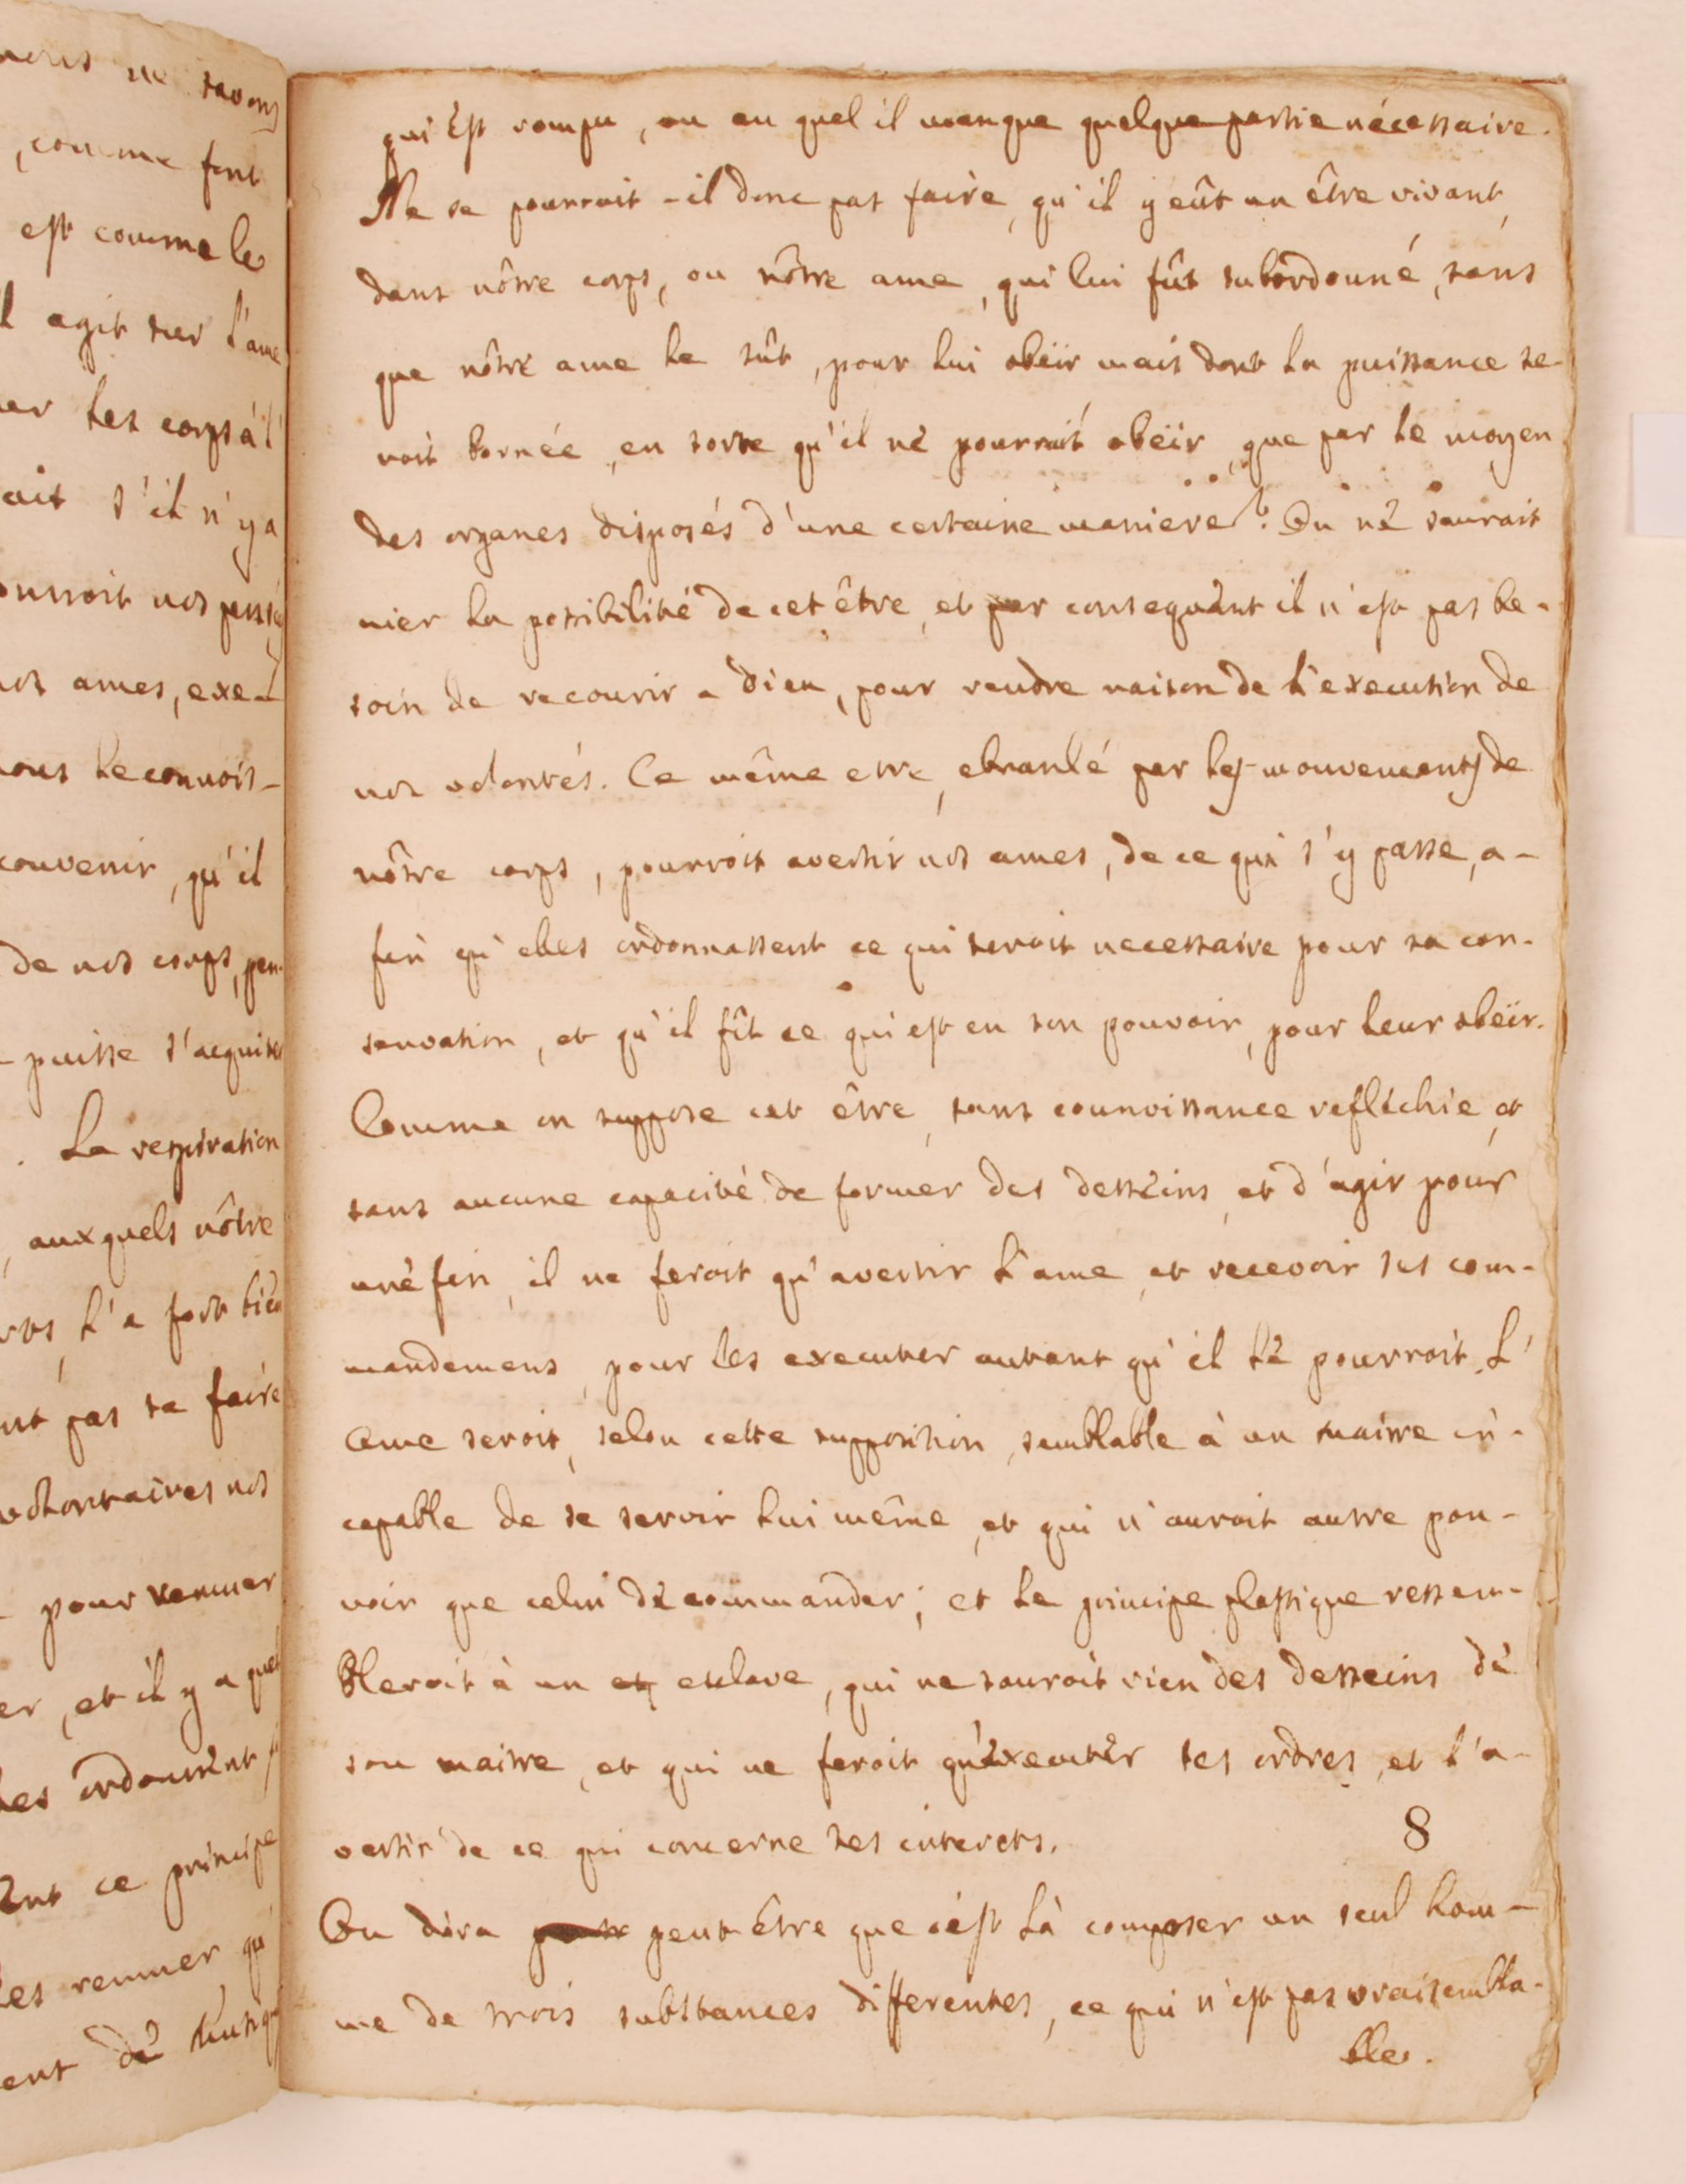 nous ne savons
, comme font
est comme le
l agit sur l'ame
er les corps à l'
ait s'il n'y a
ourroit nos pensé
nos ames, exe-
nous le connois-
convenir, qu'il
de nos corps, pen-
puisse s'acquiter
. La respiration
, auxquels nôtre
l'a fort bien
nt pas se faire
volontaires nos
pour remuer
er, et il y a quel
les ordonnent
ent ce principe
les remuer qu'
ent de
qui est rompu, ou au quel il manque quelque partie nécessaire.
Ne se pourroit-il donc pas faire, qu'il y eût un être vivant,
dans nôtre corps, ou nôtre ame, qui lui fût subordonné, sans
que nôtre ame le sût, pour lui obeïr mais dont la puissance se-
roit bornée, en sorte qu'il ne pourroit obeïr, que par le moyen
des organes disposés d'une certaine maniere? On ne sauroit
nier la possibilité de cet être, et par consequent il n'est pas be-
soin de recourir a Dieu, pour rendre raison de l'execution de
nos volontés. Ce même etre, ebranlé par les mouvements de
nôtre corps, pourroit avertir nos ames, de ce qui s'y passe, a-
fin qu'elles ordonnassent ce qui seroit necessaire pour sa con-
servation, et qu'il fît ce qui est en son pouvoir, pour leur obeïr.
Comme on suppose cet être, sans connoissance reflêchie, et
sans aucune capacité de former des desseins, et d'agir pour
une fin, il ne feroit qu'avertir l'ame, et recevoir ses com-
mandemens, pour les executer autant qu'il le pourroit. L'
ame seroit, selon cette supposition, semblable à un maitre in-
capable de se servir lui même, et qui n'auroit autre pou-
voir que celui de commander; et le principe plastique ressem-
bleroit à un es esclave, qui ne sauroit rien des desseins de
son maitre, et qui ne feroit qu'executer ses ordres, et l'a-
vertir de ce qui concerne ses interets.
8
On dira peut peut être que c'est là composer un seul hom-
me de trois substances differentes, ce qui n'est pas vraisembla-
ble.